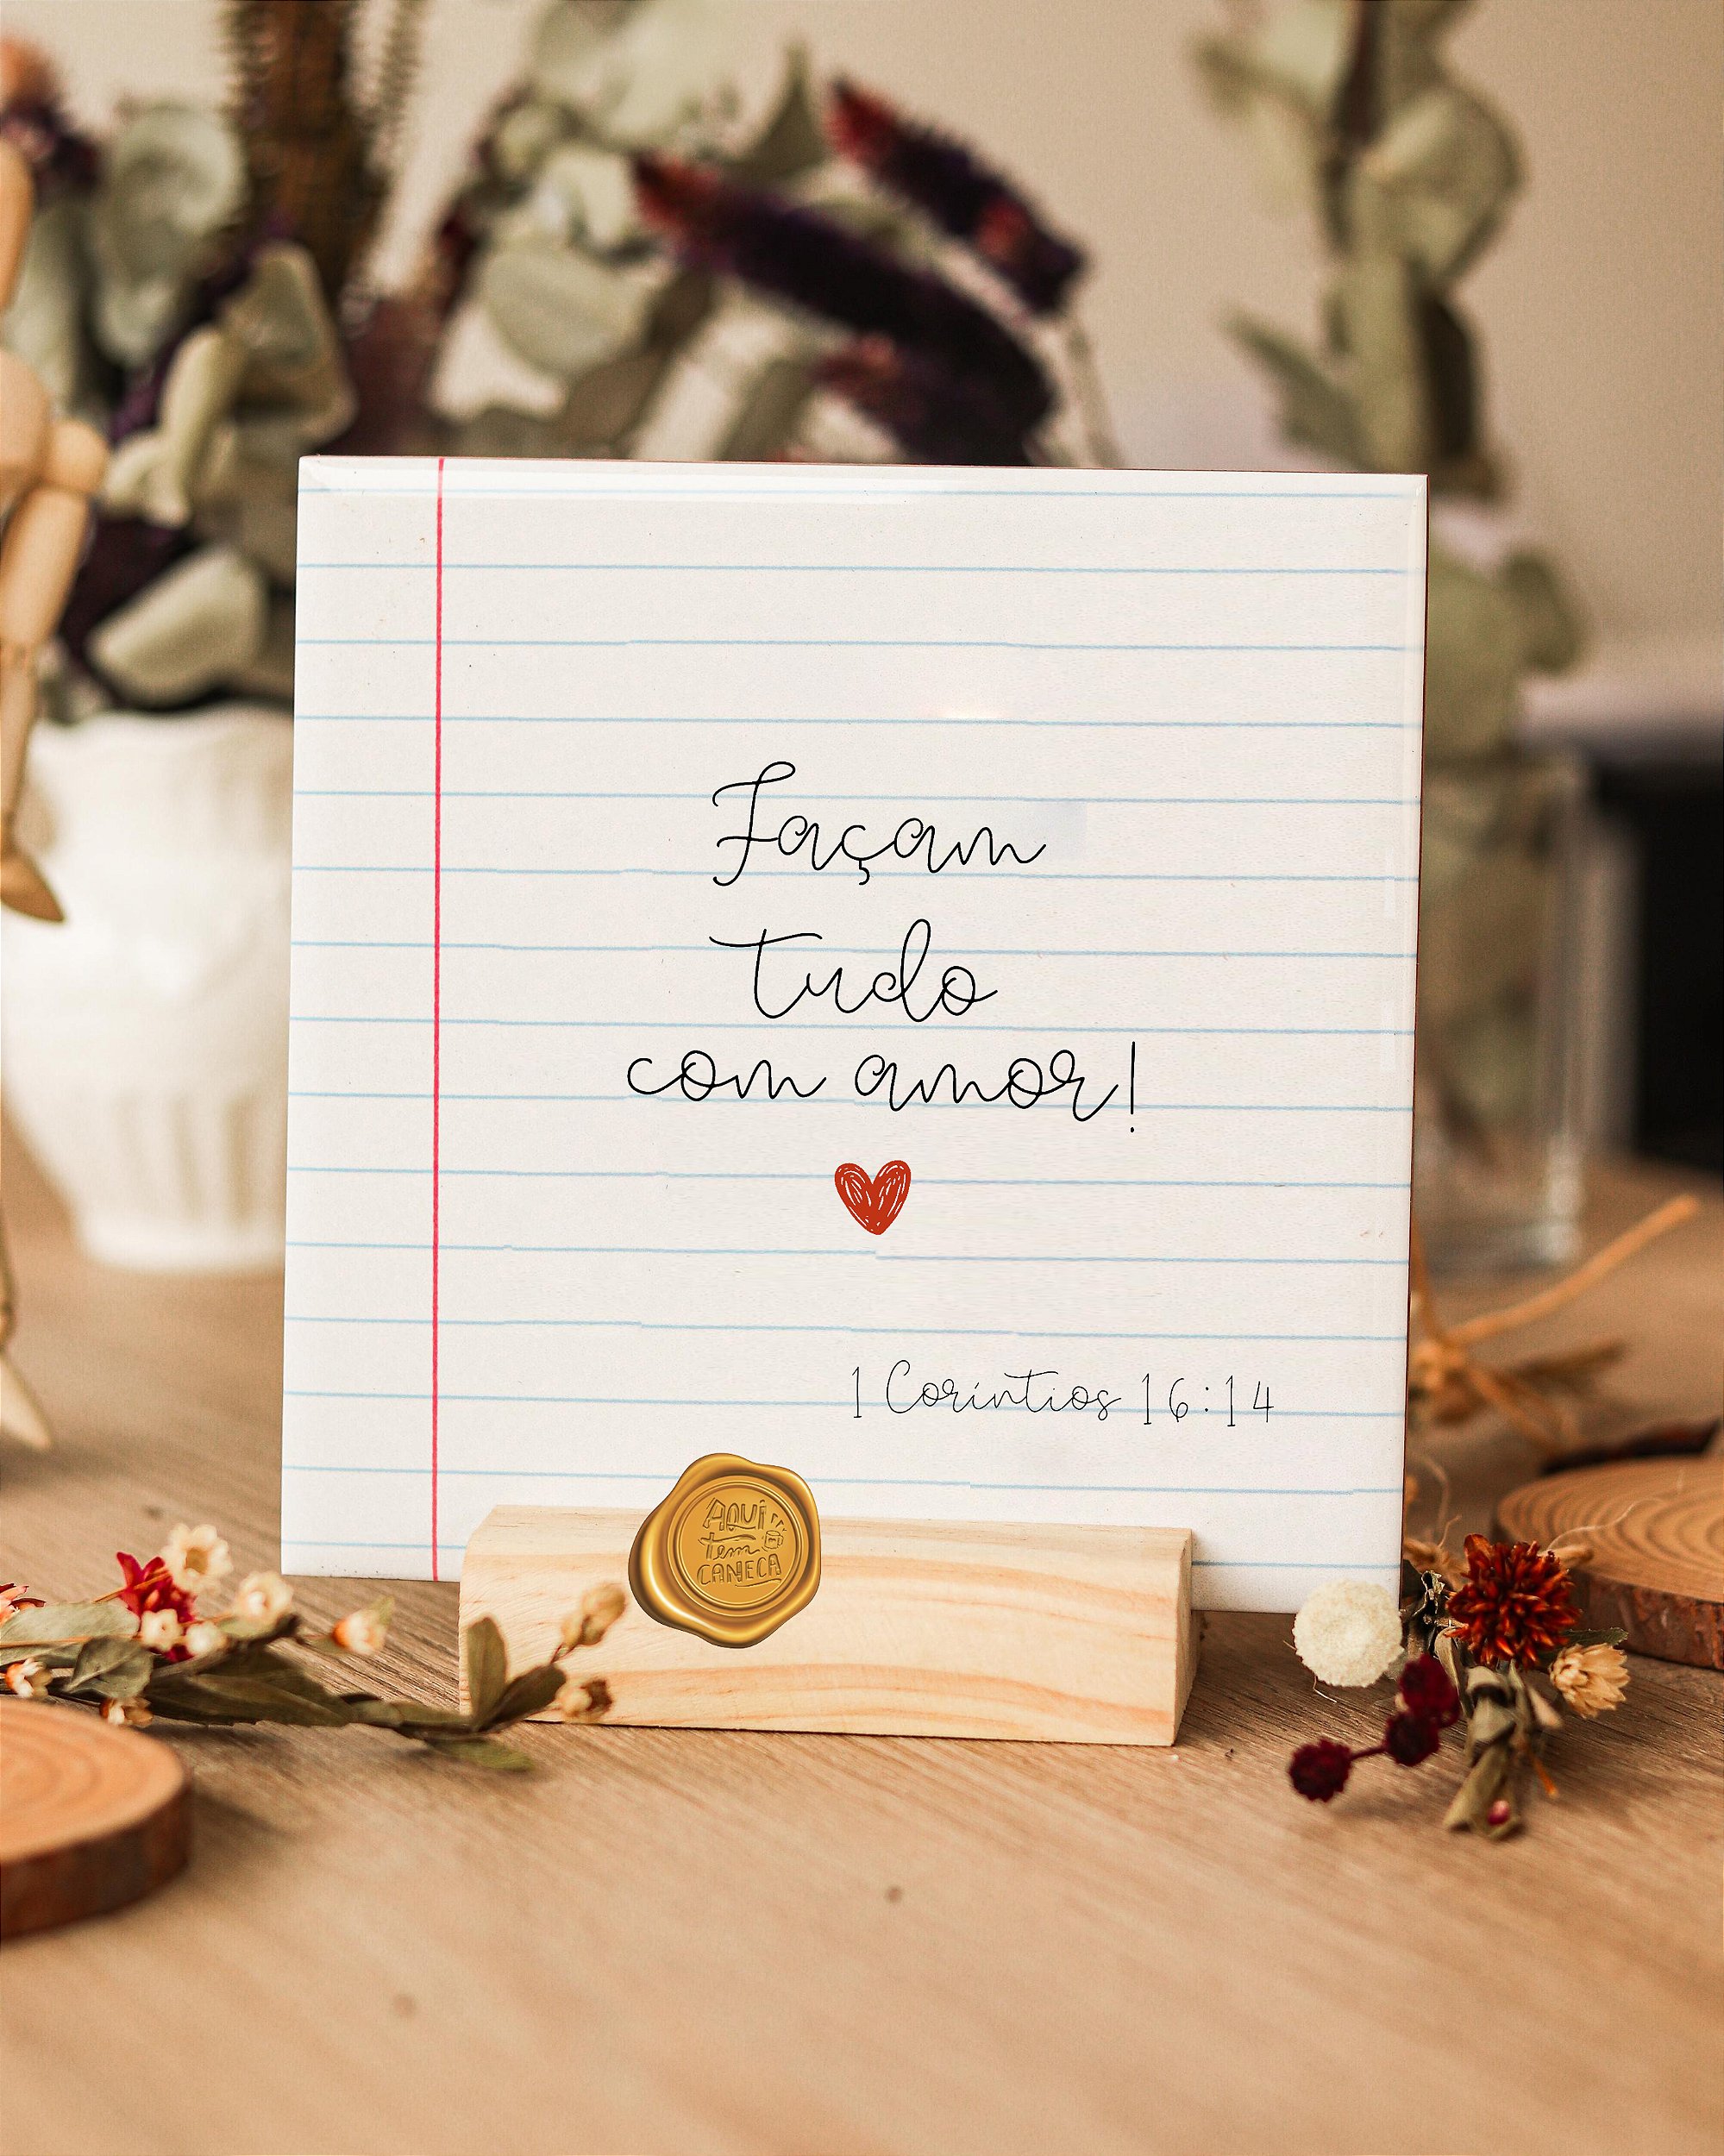 Façam
tudo
com amor!
1 Coríntios 16:14
AQUI
tem
CANECA